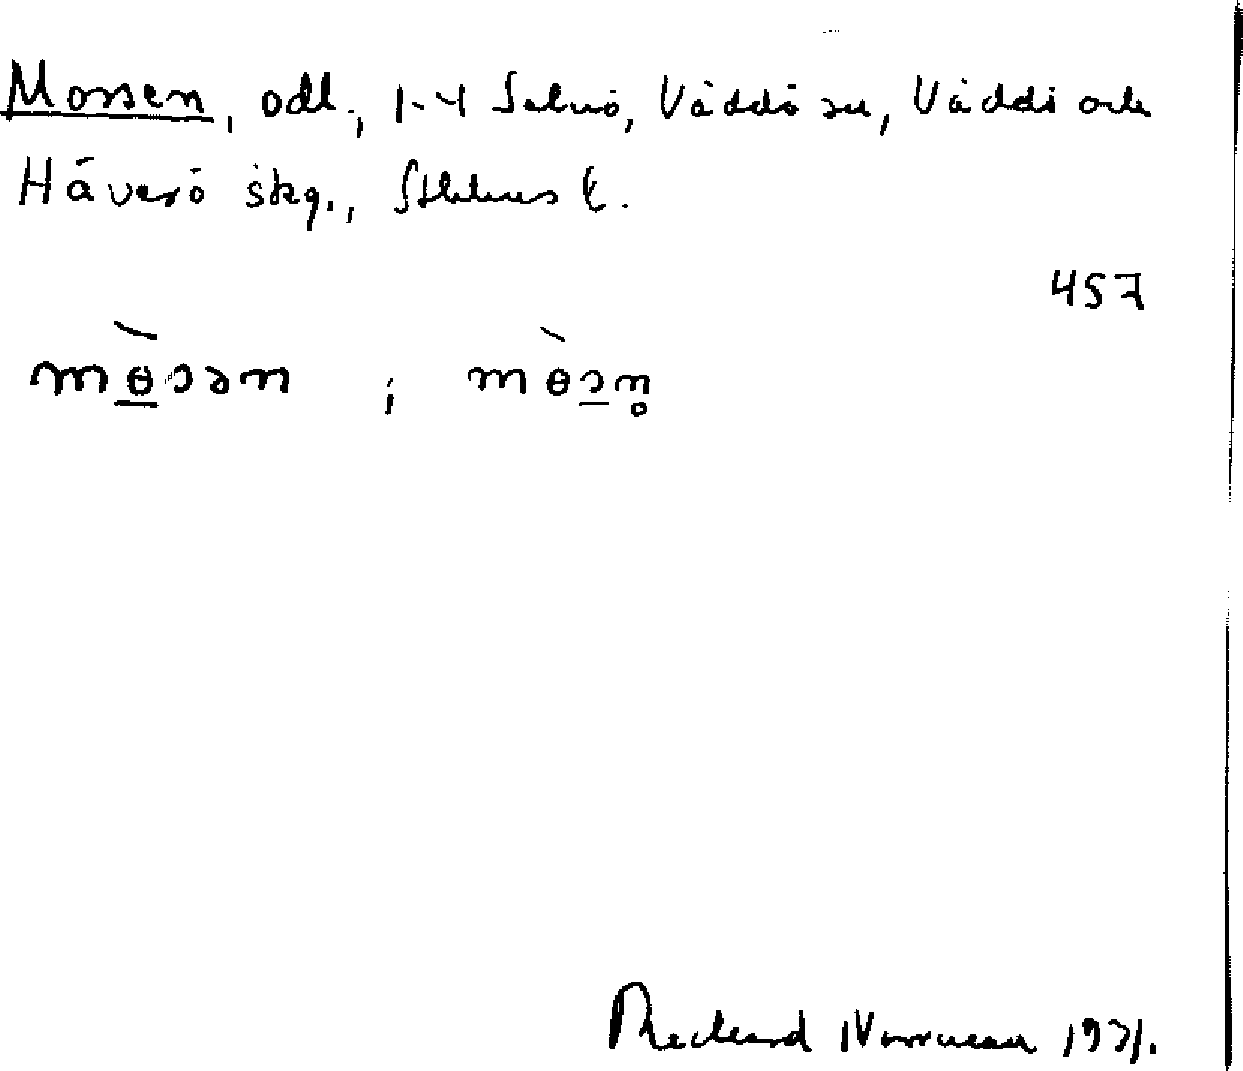 Mossen, odl., 1-4 Salnö, Väddö sn, Väddö och
Häverö skg., Sthlms l.
457
mɵ̀sən ; mɵ̀sn̥
Rickard Norrman 1931.